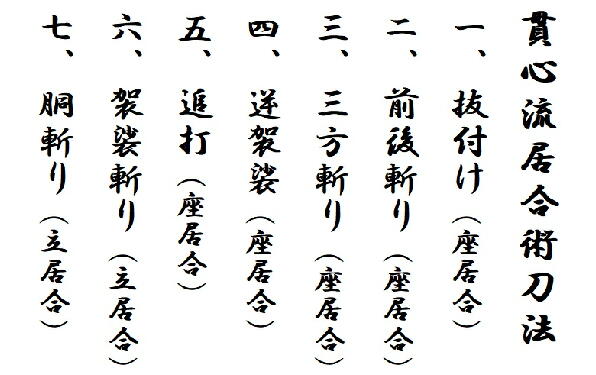 貫心流居合術刀法
一、抜付け（座居合）
二、前後斬り（座居合）
三、三方斬り（座居合）
四、逆袈裟（座居合）
五、追打（座居合）
六、袈裟斬り（立居合）
七、胴斬り（立居合）